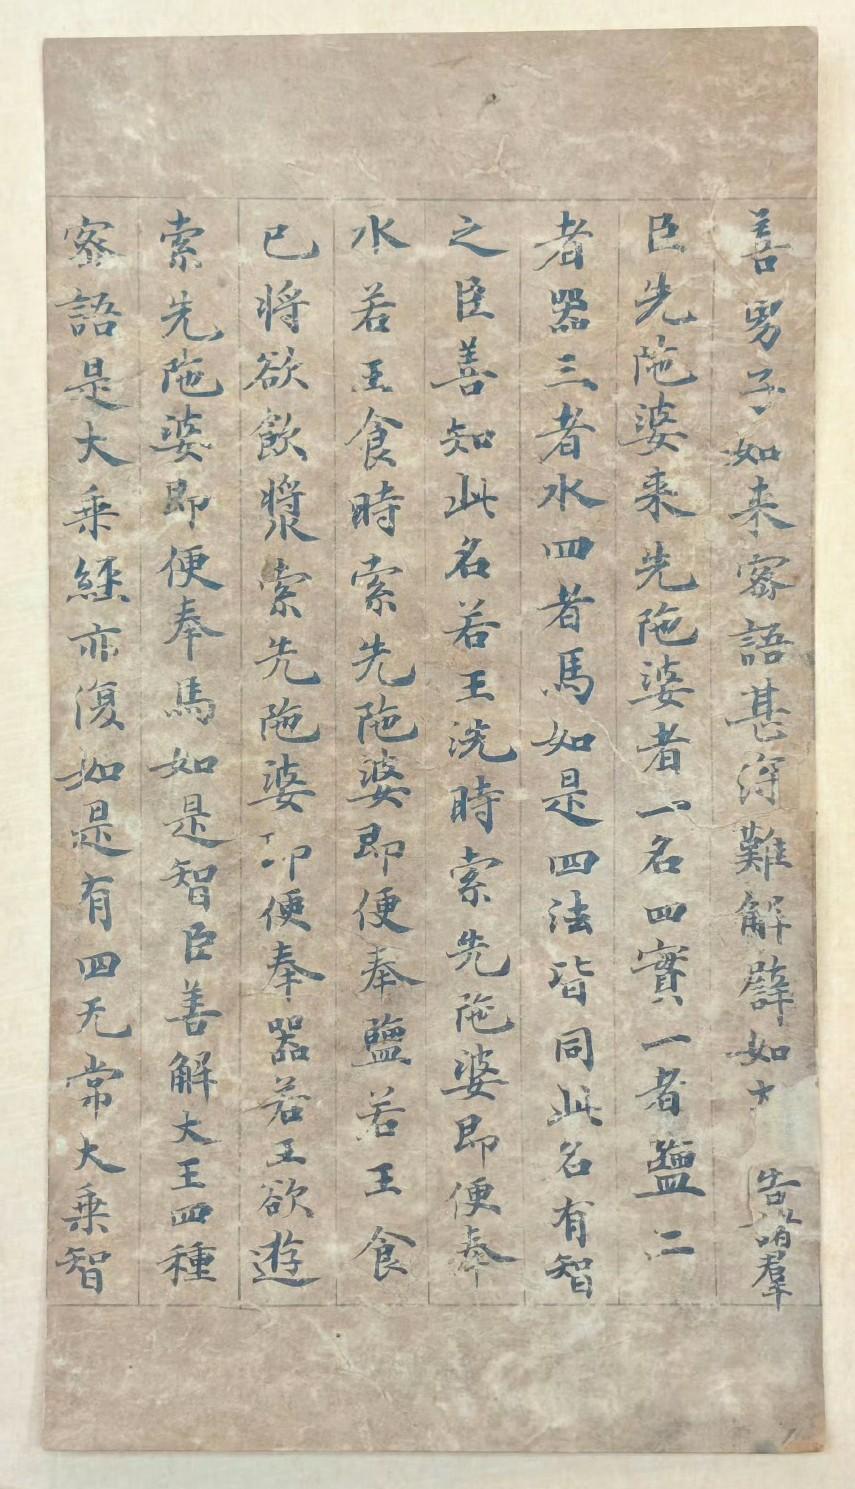 善男子如来密語甚深難解譬如大告諸羣
臣先陁婆来先陁婆者一名四實一者鹽二
者器三者水四者馬如是四法皆同此名有智
之臣善知此名若王洗時索先陁婆即便奉
水若王食時索先陁婆即便奉鹽若王食
已將欲飲漿索先陁婆即便奉器若王欲遊
索先陁婆即便奉馬如是智臣善解大王四種
密語是大乘經亦復如是有四无常大乘智